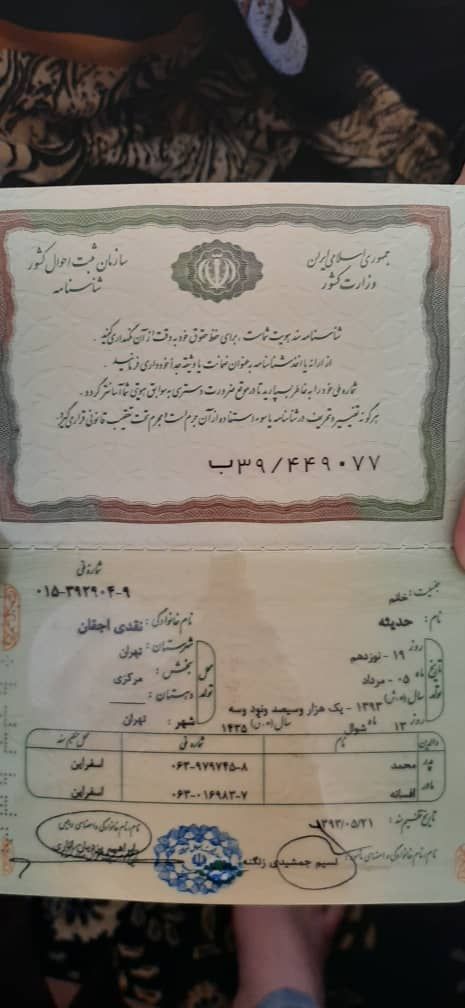 جمهوری اسلامی ایران
وزارت کشور
سازمان ثبت احوال کشور
شناسنامه
شناسنامه سند هویت شماست، برای حفظ حقوق خود به دقت از آن نگهداری کنید.
از ارائه یا اخذ شناسنامه به عنوان ضمانت یا وثیقه جداً خودداری فرمائید.
شماره ملی خود را به خاطر بسپارید تا در موقع ضرورت دسترسی به سوابق هویتی شما آسانتر گردد.
هرگونه تغییر و تحریف در شناسنامه یا سوء استفاده از آن جرم است و مجرم تحت تعقیب قانونی قرار می‌گیرد.
ب۳۹/۴۴۹۰۷۷
شماره ملی
۰۱۵-۳۹۲۹۰۴-۹
جنسیت: خانم
نام: حدیثه
نام خانوادگی: نقدی اجقان
تاریخ تولد
روز ۱۹ - نوزدهم
ماه ۰۵ - مرداد
سال (ه.ش) ۱۳۹۳ - یک هزار و سیصد و نود و سه
روز ۱۳ ماه شوال سال (ه.ق) ۱۴۳۵
محل تولد
شهرستان: تهران
بخش: مرکزی
دهستان:
شهر: تهران
والدین نام شماره ملی محل تنظیم سند
پدر محمد ۰۶۳-۹۷۹۷۴۵-۸ اسفراین
مادر افسانه ۰۶۳-۰۱۶۹۸۳-۷ اسفراین
تاریخ تنظیم سند: ۱۳۹۳/۰۵/۲۱
نام، نام خانوادگی و امضای
نسیم جمشیدی زنگنه
نام، نام خانوادگی و امضای
ابراهیم